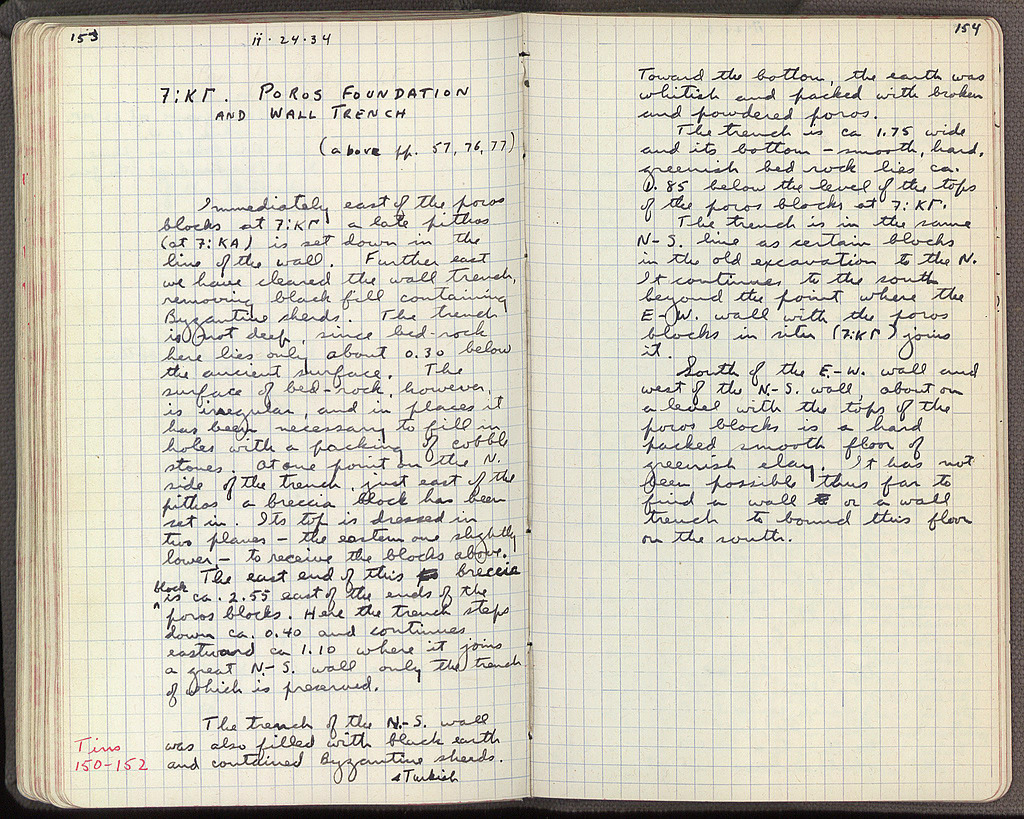 153
ii·24·34
7:ΚΓ. POROS FOUNDATION
AND WALL TRENCH
(above pp. 57, 76, 77)
Immediately east of the poros
blocks at 7:ΚΓ a late pithos
(at 7:ΚΛ) is set down in the
line of the wall. Further east
we have cleared the wall trench,
removing black fill containing
Byzantine sherds. The trench
is not deep, since bed-rock
here lies only about 0.30 below
the ancient surface. The
surface of bed-rock, however,
is irregular, and in places it
has been necessary to fill in
holes with a packing of cobble
stones. At one point on the N.
side of the trench, just east of the
pithos a breccia block has been
set in. Its top is dressed in
two planes – the eastern one slightly
lower, – to receive the blocks above.
The east end of this breccia
block
is ca. 2.55 east of the ends of the
poros blocks. Here the trench steps
down ca. 0.40 and continues
eastward ca 1.10 where it joins
a great N-S. wall only the trench
of which is preserved.
The trench of the N.-S. wall
was also filled with black earth
and contained Byzantine sherds.
& Turkish
Tins
150-152
154
Toward the bottom, the earth was
whitish and packed with broken
and powdered poros.
The trench is ca 1.75 wide
and its bottom – smooth, hard,
greenish bed rock lies ca.
0.85 below the level of the tops
of the poros blocks at 7:ΚΓ.
The trench is in the same
N-S. line as certain blocks
in the old excavation to the N.
It continues to the south
beyond the point where the
E-W. wall with the poros
blocks in situ (7:ΚΓ) joins
it.
South of the E.-W. wall and
west of the N-S. wall, about on
a level with the tops of the
poros blocks is a hard
packed smooth floor of
greenish clay. It has not
been possible thus far to
find a wall or a wall
trench to bound this floor
on the south.